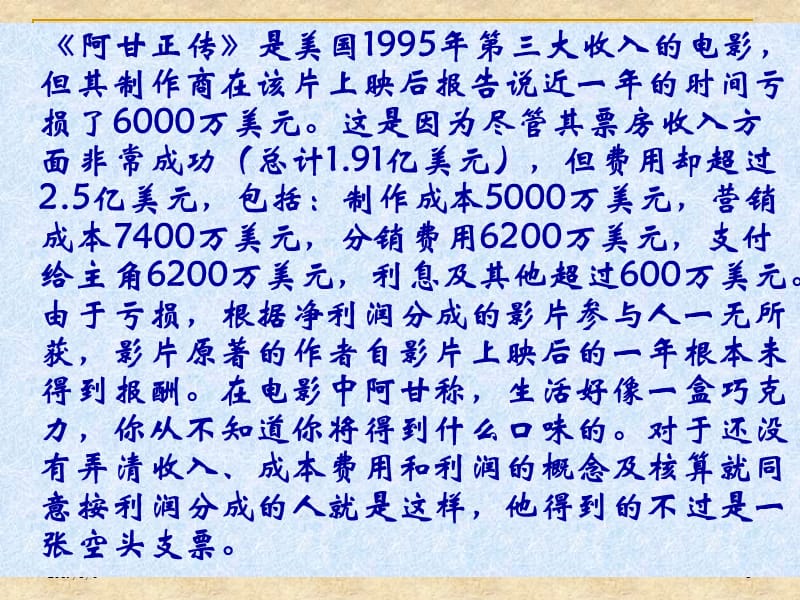 《阿甘正传》是美国1995年第三大收入的电影，
但其制作商在该片上映后报告说近一年的时间亏
损了6000万美元。这是因为尽管其票房收入方
面非常成功（总计1.91亿美元），但费用却超过
2.5亿美元，包括：制作成本5000万美元，营销
成本7400万美元，分销费用6200万美元，支付
给主角6200万美元，利息及其他超过600万美元。
由于亏损，根据净利润分成的影片参与人一无所
获，影片原著的作者自影片上映后的一年根本未
得到报酬。在电影中阿甘称，生活好像一盒巧克
力，你从不知道你将得到什么口味的。对于还没
有弄清收入、成本费用和利润的概念及核算就同
意按利润分成的人就是这样，他得到的不过是一
张空头支票。